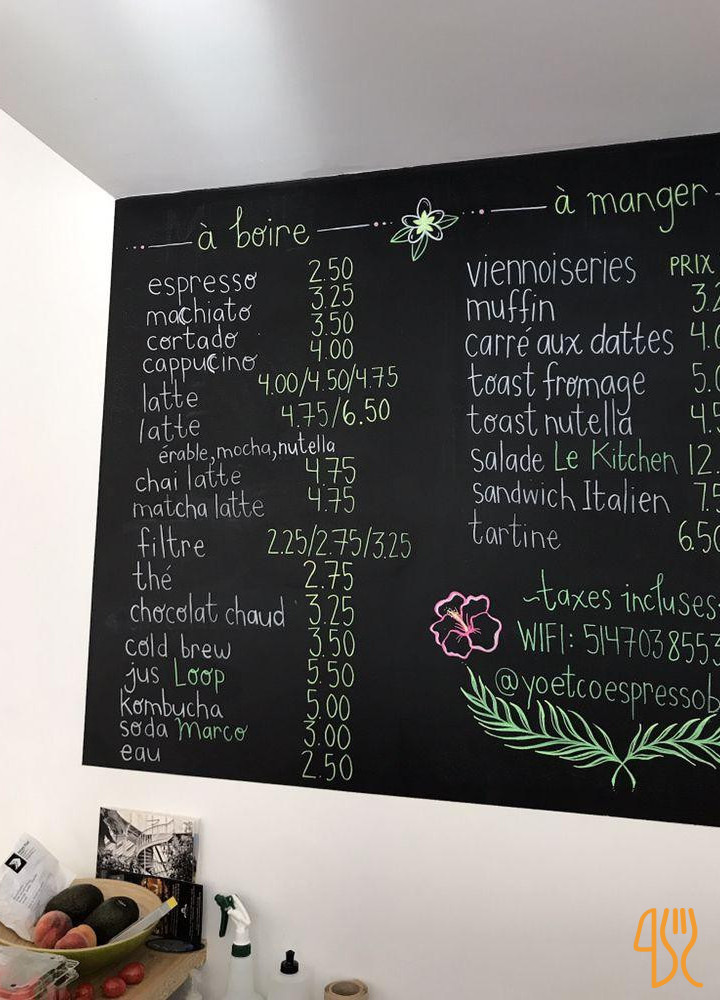 à boire
espresso 2.50
machiato 3.25
cortado 3.50
cappucino 4.00
latte 4.00/4.50/4.75
latte 4.75/6.50
érable, mocha, nutella
chai latte 4.75
matcha latte 4.75
filtre 2.25/2.75/3.25
thé 2.75
chocolat chaud 3.25
cold brew 3.50
jus Loop 5.50
kombucha 5.00
soda Marco 3.00
eau 2.50
à manger
viennoiseries PRIX
muffin 3.2
carré aux dattes 4.0
toast fromage 5.0
toast nutella 4.5
salade Le Kitchen 12.
sandwich Italien 7.5
tartine 6.50
~taxes incluses
WIFI: 5147038553
@yoetcoespressob